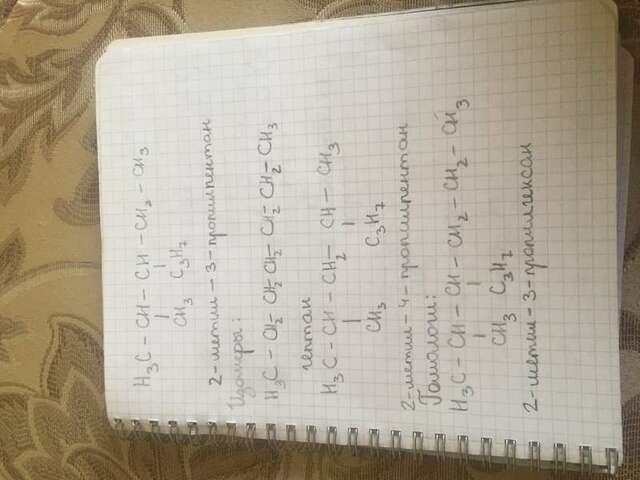 H₃C – CH – CH – CH₂ – CH₃
CH₃ C₃H₇
2-метил – 3-пропилпентан
Изомеры:
H₃C – CH₂ – CH₂ – CH₂ – CH₂ – CH₂ – CH₃
гептан
H₃C – CH – CH₂ – CH – CH₃
CH₃ C₃H₇
2-метил-4-пропилпентан
Гомологи:
H₃C – CH – CH – CH₂ – CH₂ – CH₃
CH₃ C₃H₇
2-метил-3-пропилгексан